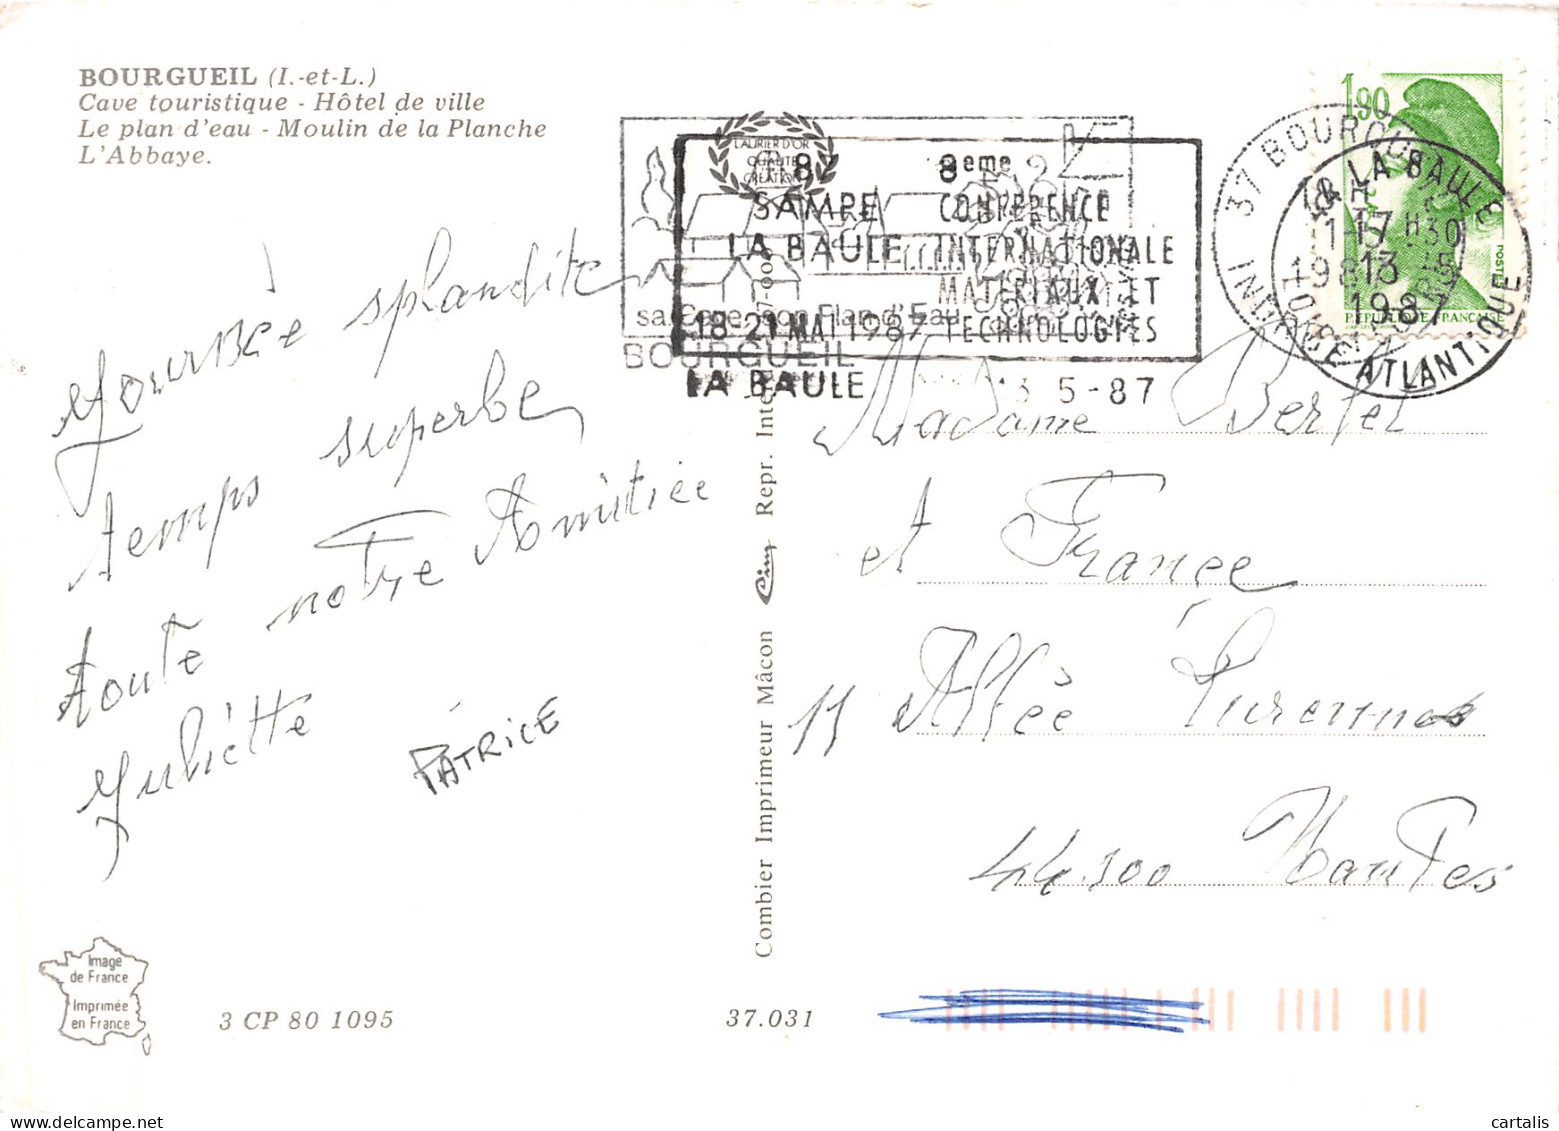 BOURGUEIL (I.-et-L.)
Cave touristique - Hôtel de ville
Le plan d'eau - Moulin de la Planche
L'Abbaye.
1,90
POSTES
REPUBLIQUE FRANÇAISE
LAURIER D'OR
QUALITE
CREATION
sa Cave, son Plan d'Eau
BOURGUEIL
87
SAMPE
LA BAULE
18 21 MAI 1987
8eme
CONFERENCE
INTERNATIONALE
MATERIAUX ET
TECHNOLOGIES
LA BAULE
13 5-87
37 BOURGUEIL
INDRE
LA BAULE
17 H30
13
1987
LOIRE ATLANTIQUE
Journèe splandite
temps superbe
toute notre Amitiée
Juliètte
PATRICE
Madame Bertet
et France
11 Allée Turenne
44.100 Nantes
Combier Imprimeur Mâcon Cim Repr. Inter
Image
de France
Imprimée
en France
3 CP 80 1095
37.031
cartalis